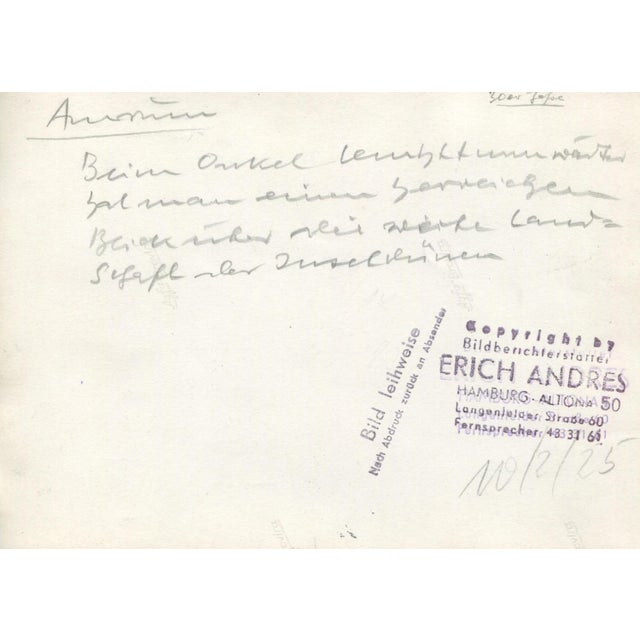 30er Jahre
Amrum
Beim Onkel Leuchtturmwärter
hat man einen herrlichen
Blick über die weite Land=
schaft der Inseldünen
Bild leihweise
Nach Abdruck zurück an Absender
Copyright by
Bildberichterstatter
ERICH ANDRES
HAMBURG-ALTONA 50
Langenfelder Straße 60
Fernsprecher 43 31 61
10/2/25